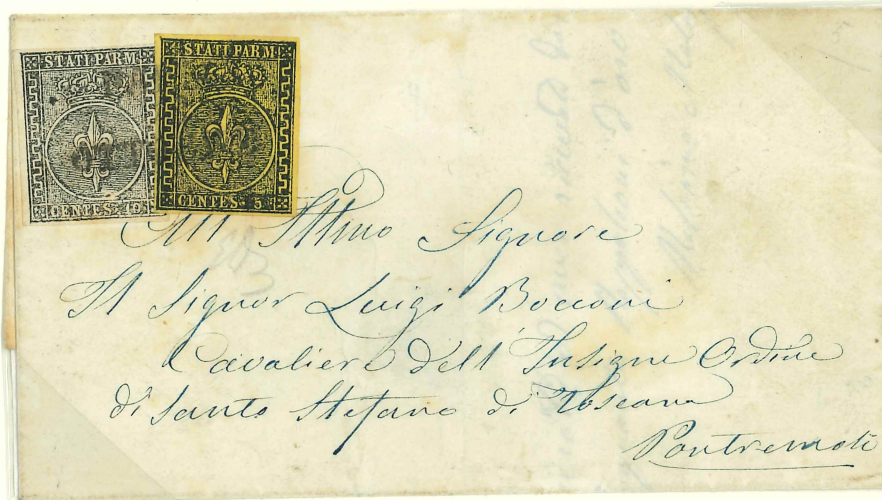 STATI PARM
CENTES. 10
STATI PARM
CENTES. 5
All Illmo Signore
Il Signor Luigi Bocconi
Cavaliere dell'Insigne Ordine
di Santo Stefano di Toscana
Pontremoli